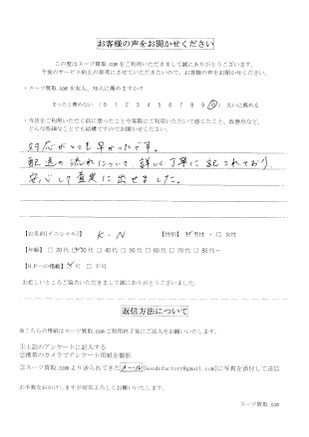 お客様の声をお聞かせください
この度はスーツ買取.comをご利用いただきまして誠にありがとうございます。
今後のサービス向上の参考にさせていただきたいので、お客様の声をお聞かせください。
・スーツ買取.comを友人、知人に薦めますか?
まったく薦めない (0 1 2 3 4 5 6 7 8 9 10) 大いに薦める
・当店をご利用いただく前に思ったことや実際にご利用いただいて感じたこと、改善点など、
どんな些細なことでも結構ですのでお聞かせください。
対応がとても早かったです。
配送の流れについて詳しく丁寧に記されており、
安心して査定に出せました。
【お名前(イニシャル)】 K-N 【性別】 男性・□ 女性
【年齢】 □ 20代 30代 □ 40代 □ 50代 □ 60代 □ 70代 □ 80代〜
【H.Pへの掲載】 可 □ 不可
お忙しいところご協力いただきまして誠にありがとうございました。
返信方法について
※こちらの用紙はスーツ買取.comご利用終了後にご記入をお願いいたします。
①上記のアンケートに記入する
②携帯のカメラでアンケート用紙を撮影
③スーツ買取.comより送られてきたメール(goodsfactory@gmail.com)に写真を添付して送信
お手数をおかけしますが何卒よろしくお願いいたします。
スーツ買取.com